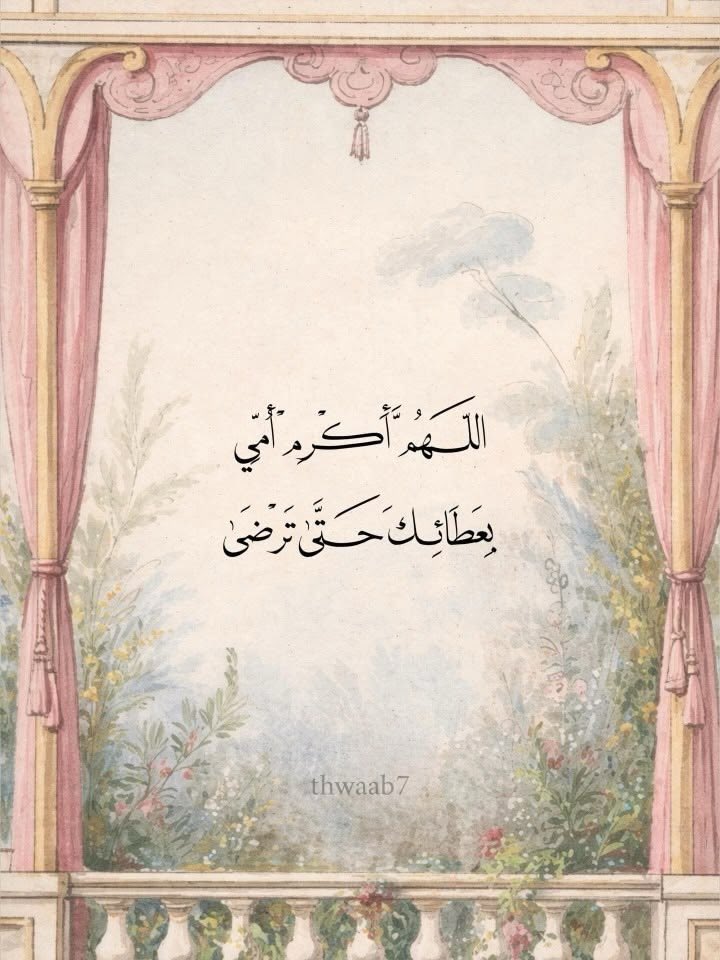 اللَّهُمَّ أَكْرِمْ أُمِّي
بِعَطَائِكَ حَتَّىٰ تَرْضَىٰ
thwaab7